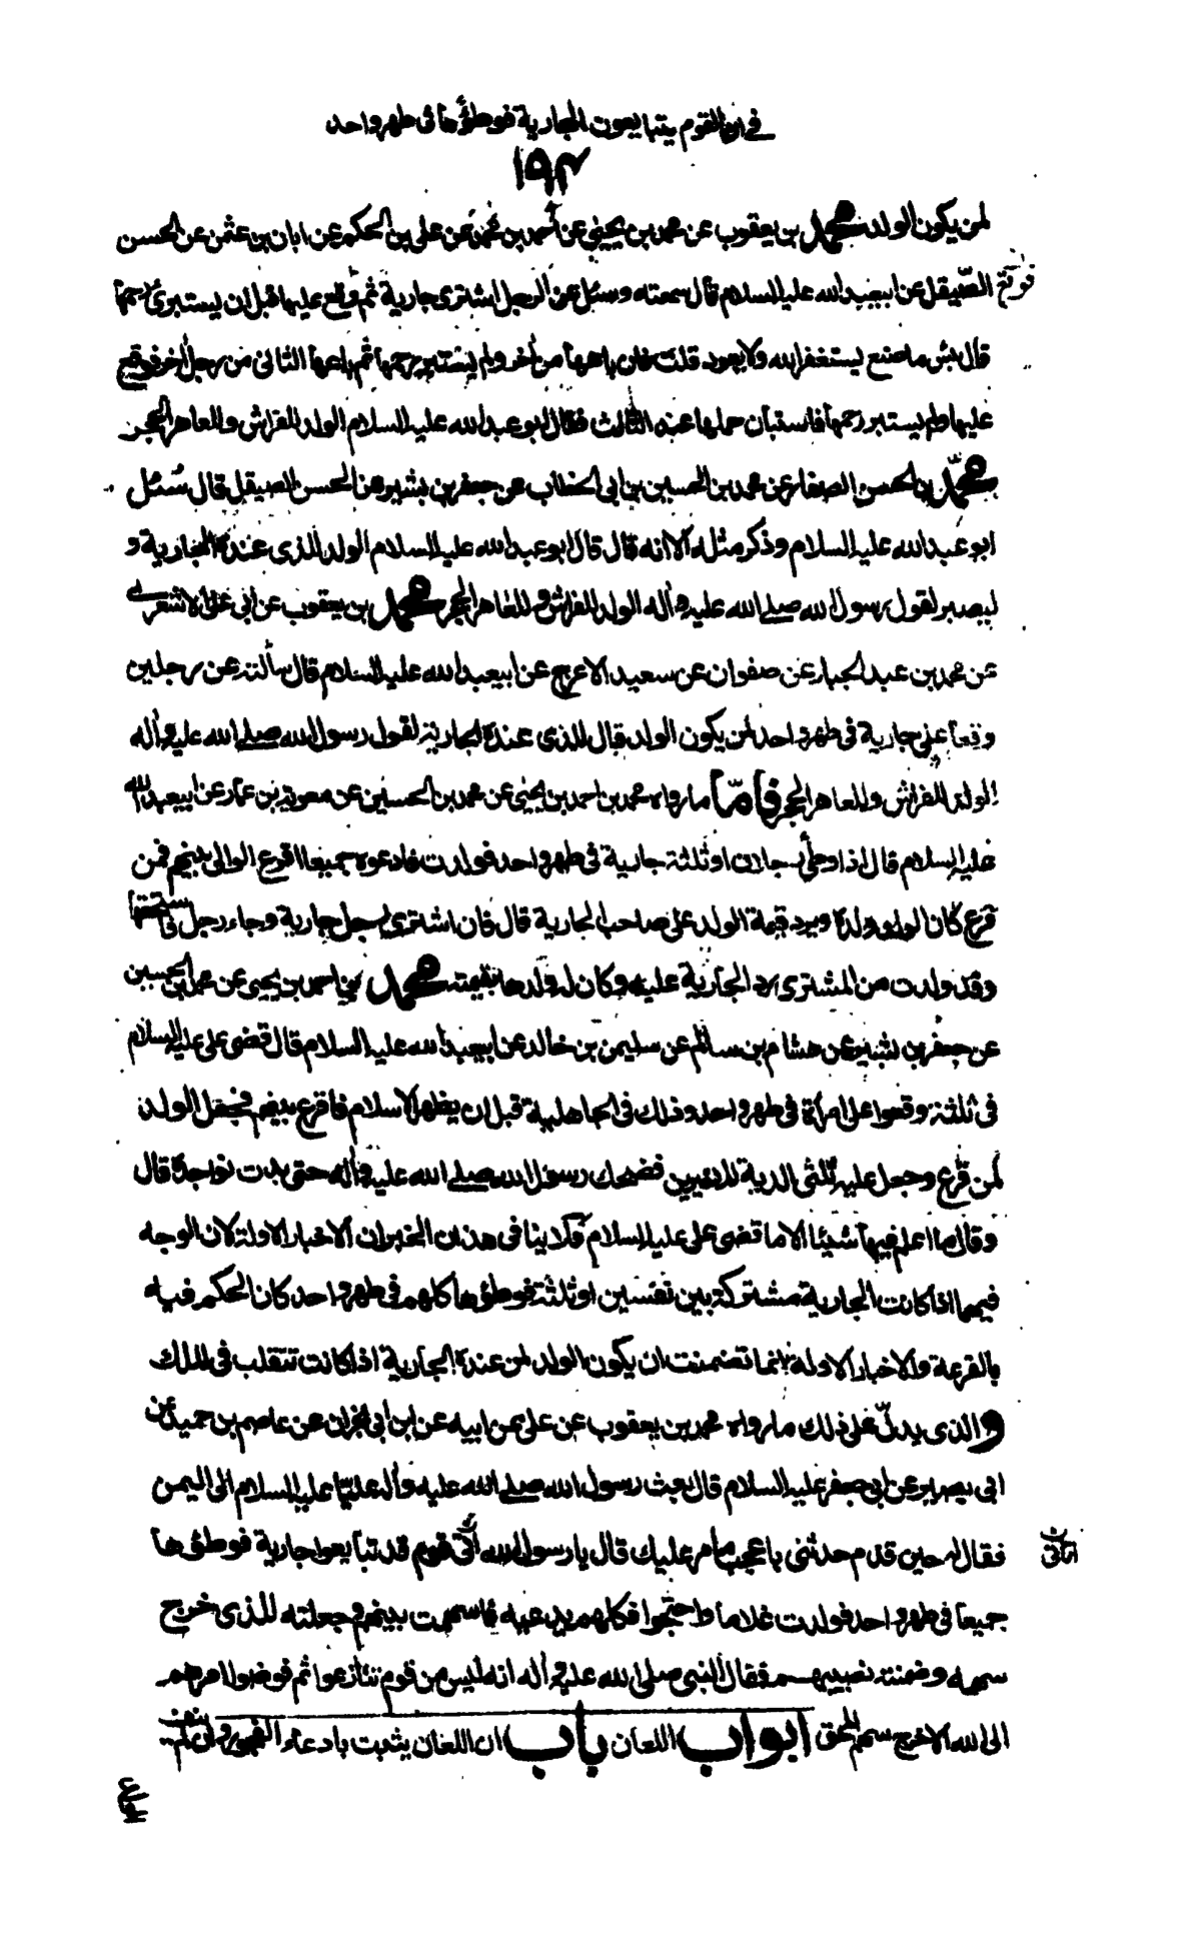 في ان القوم يتبايعون الجارية فوطؤها في طهر واحد
١٩٣
لمن يكون الولد محمد بن يعقوب عن محمد بن يحيى عن أحمد بن محمد عن علي بن الحكم عن ابان بن عثمن عن الحسن
الصّيقل عن ابيعبدالله عليه السلام قال سمعته وسئل عن الرجل اشترى جارية ثم وقع عليها قبل ان يستبرئ رحمها
قال بئس ما صنع يستغفر الله ولا يعود قلت فان باعها من اخر ولم يستبرء رحمها ثم باعها الثاني من رجل اخر فوقع
عليها ولم يستبرء رحمها فاستبان حملها عند الثالث فقال ابو عبدالله عليه السلام الولد للفراش وللعاهر الحجر
محمّد بن الحسن الصفار عن محمد بن الحسين بن ابي الخطاب عن جعفر بن بشير عن الحسن الصيقل قال سُئل
ابو عبدالله عليه السلام وذكر مثله الا انه قال قال ابو عبدالله عليه السلام الولد للذى عنده الجارية و
ليصبر لقول رسول الله صلى الله عليه وآله الولد للفراش وللعاهر الحجر محمد بن يعقوب عن ابي علي الاشعري
عن محمد بن عبد الجبار عن صفوان عن سعيد الاعرج عن ابيعبدالله عليه السلام قال سألته عن رجلين
وقعا على جارية في طهر واحد لمن يكون الولد قال للذى عنده الجارية لقول رسول الله صلى الله عليه وآله
الولد للفراش وللعاهر الحجر فامّا ما رواه محمد بن احمد بن يحيى عن محمد بن الحسين عن معوية بن عمار عن ابيعبدالله
عليه السلام قال اذا وطئ رجلان او ثلثة جارية في طهر واحد فولدت فادعوه جميعا اقرع الوالي بينهم فمن
قرع كان الولد ولده ويرد قيمة الولد على صاحب الجارية قال فان اشترى رجل جارية وجاء رجل فاستحقها
وقد ولدت من المشترى رد الجارية عليه وكان له ولدها بقيمته محمد بن احمد بن يحيى عن محمد بن الحسين
عن جعفر بن بشير عن هشام بن سالم عن سليمن بن خالد عن ابيعبدالله عليه السلام قال قضى علي عليه السلام
في ثلثة وقعوا على امرأة في طهر واحد وذلك في الجاهلية قبل ان يظهر الاسلام فاقرع بينهم فجعل الولد
لمن قرع وجعل عليه ثلثي الدية للاخيرين فضحك رسول الله صلى الله عليه وآله حتى بدت نواجذه قال
وقال ما اعلم فيها شيئا الا ما قضى علي عليه السلام فلا ينافى هذان الخبران الاخبار الاولة لان الوجه
فيهما اذا كانت الجارية مشتركة بين نفسين او ثلثة فوطؤها كلهم في طهر واحد كان الحكم فيه
بالقرعة والاخبار الاولة انما تضمنت ان يكون الولد لمن عنده الجارية اذا كانت تنتقلب في الملك
والذى يدلّ على ذلك ما رواه محمد بن يعقوب عن علي عن ابيه عن ابن ابي نجران عن عاصم بن حميد عن
ابي بصير عن ابي جعفر عليه السلام قال بعث رسول الله صلى الله عليه وآله عليّا عليه السلام الى اليمن
فقال له حين قدم حدثنى باعجب ما مر عليك قال يا رسول الله اتى قوم قد تبايعوا جارية فوطئوها
جميعا في طهر واحد فولدت غلاما واحتجوا فكلهم يدعيه فاسهمت بينهم وجعلته للذى خرج
سهمه وضمنته نصيبهم فقال النبي صلى الله عليه وآله انه ليس من قوم تنازعوا ثم فوضوا امرهم
الى الله الا خرج سهم المحق ابواب اللعان باب ان اللعان يثبت بادعاء الفجور وان لم ينف